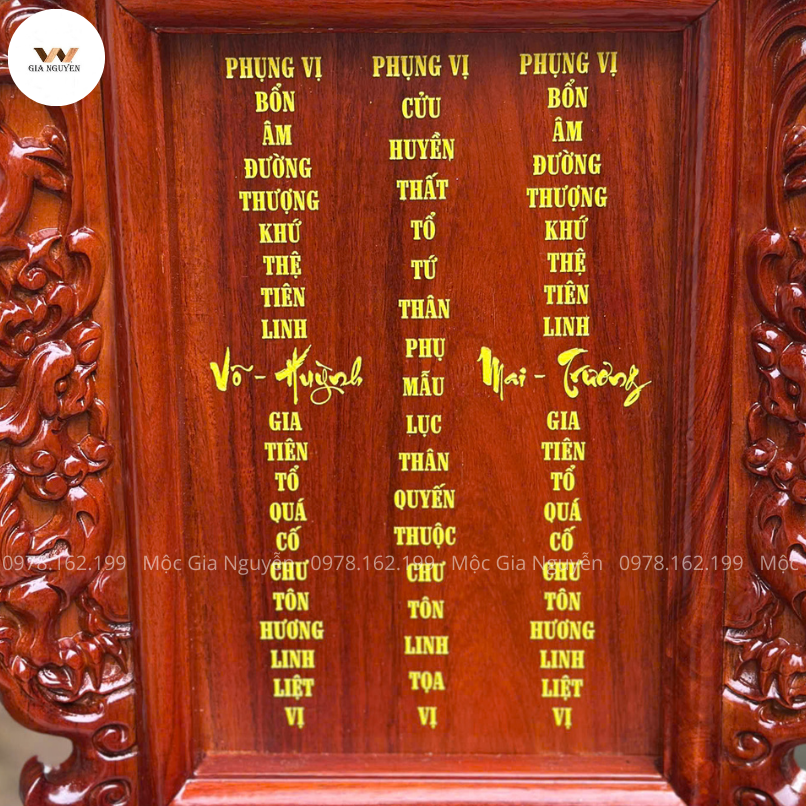 GIA NGUYEN
PHỤNG VỊ
BỔN
ÂM
ĐƯỜNG
THƯỢNG
KHỨ
THỆ
TIÊN
LINH
Võ - Huỳnh
GIA
TIÊN
TỔ
QUÁ
CỐ
CHƯ
TÔN
HƯƠNG
LINH
LIỆT
VỊ
PHỤNG VỊ
CỬU
HUYỀN
THẤT
TỔ
TỨ
THÂN
PHỤ
MẪU
LỤC
THÂN
QUYẾN
THUỘC
CHƯ
TÔN
LINH
TỌA
VỊ
PHỤNG VỊ
BỔN
ÂM
ĐƯỜNG
THƯỢNG
KHỨ
THỆ
TIÊN
LINH
Mai - Trương
GIA
TIÊN
TỔ
QUÁ
CỐ
CHƯ
TÔN
HƯƠNG
LINH
LIỆT
VỊ
0978.162.199 Mộc Gia Nguyễn 0978.162.199 Mộc Gia Nguyễn 0978.162.199 Mộc